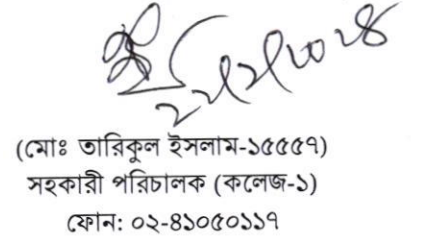 (মোঃ তারিকুল ইসলাম-১৫৫৫৭)
সহকারী পরিচালক (কলেজ-১)
ফোন: ০২-৪১০৫০১১৭